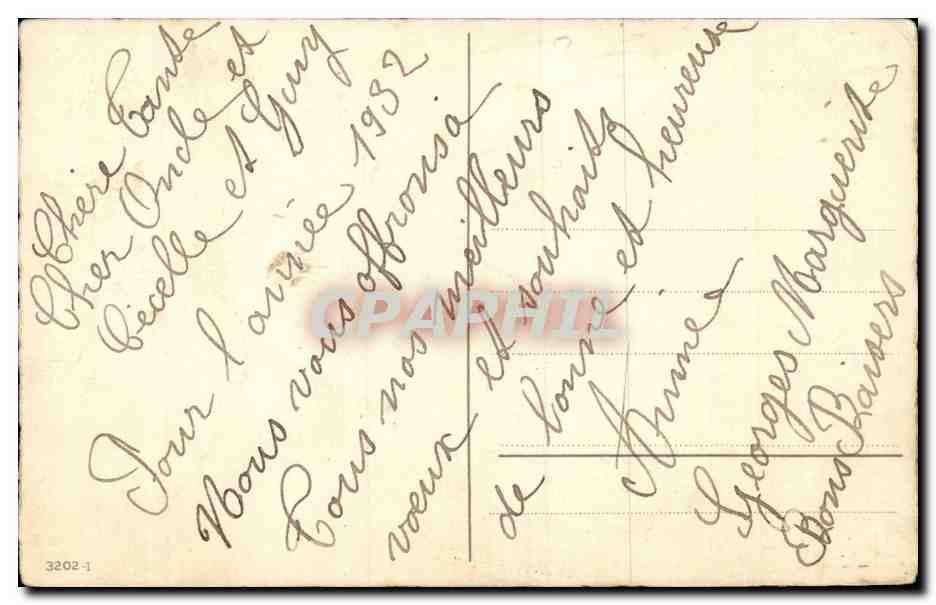 Chère Tante
Cher Oncle et
Cécelle et Guy
Pour l'année 1932
Nous vous offrons à
Tous nos meilleurs
vœux et souhaits
de bonne et heureuse
Année
Georges Marguerite
Bons Baisers
CPAPHIL
3202-I